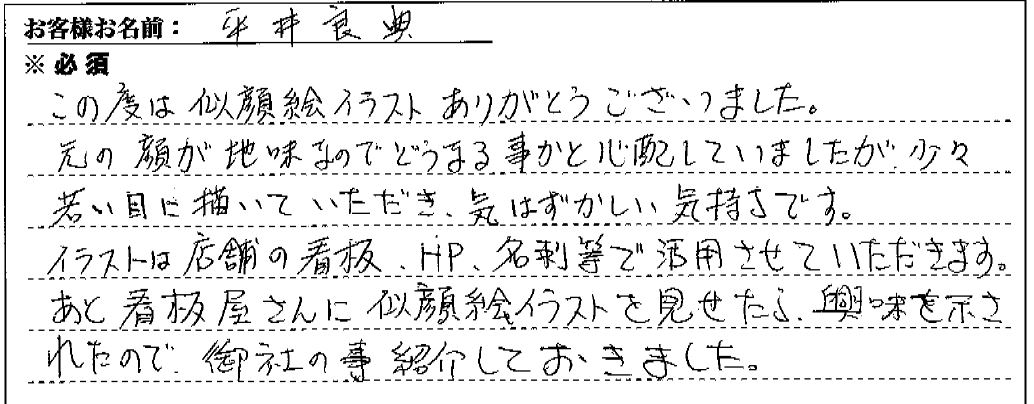 お客様お名前： 平井良典
※必須
この度は似顔絵イラストありがとうございました。
元の顔が地味なのでどうなる事かと心配していましたが、少々
若い目に描いていただき、気はずかしい気持ちです。
イラストは店舗の看板、HP、名刺等で活用させていただきます。
あと看板屋さんに似顔絵イラストを見せたら、興味を示さ
れたので、御社の事紹介しておきました。